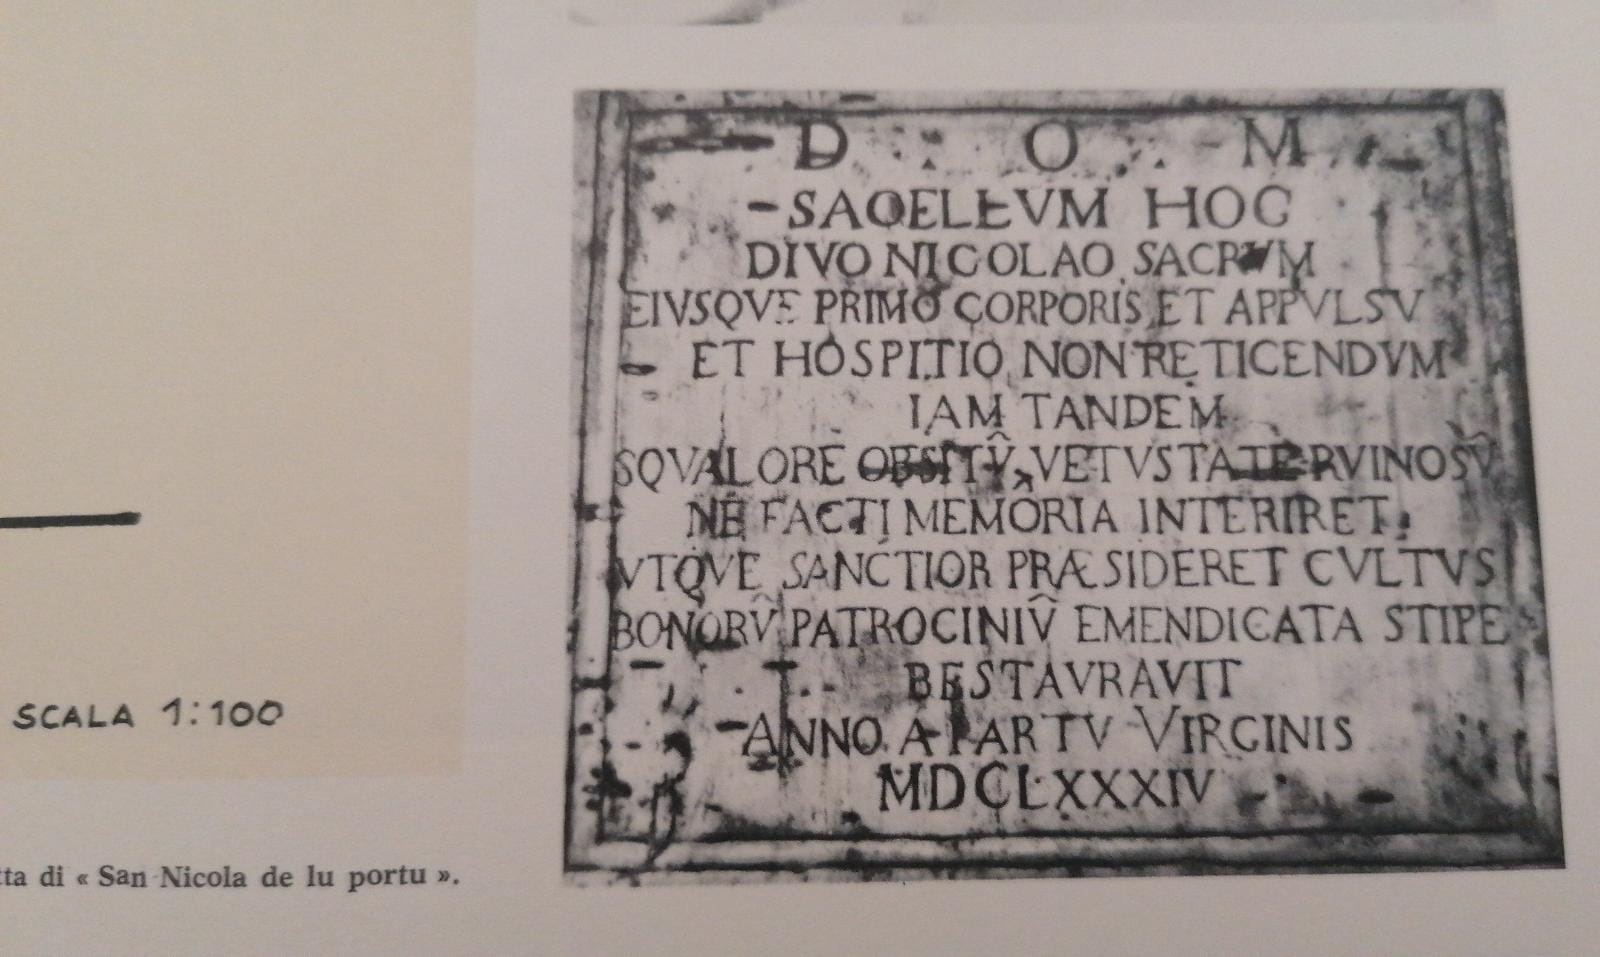 D . O . M .
SACELLVM HOC
DIVO NICOLAO SACRVM
EIVSQVE PRIMO CORPORIS ET APPVLSV
ET HOSPITIO NON RETICENDVM
IAM TANDEM
SQVALORE OBSITV̂ VETVSTATE RVINOSV̂
NE FACTI MEMORIA INTERIRET
VTQVE SANCTIOR PRÆSIDERET CVLTVS
BONORV̂ PATROCINIV̂ EMENDICATA STIPE
RESTAVRAVIT
ANNO A PARTV VIRGINIS
MDCLXXXIV
SCALA 1:100
tta di « San Nicola de lu portu ».